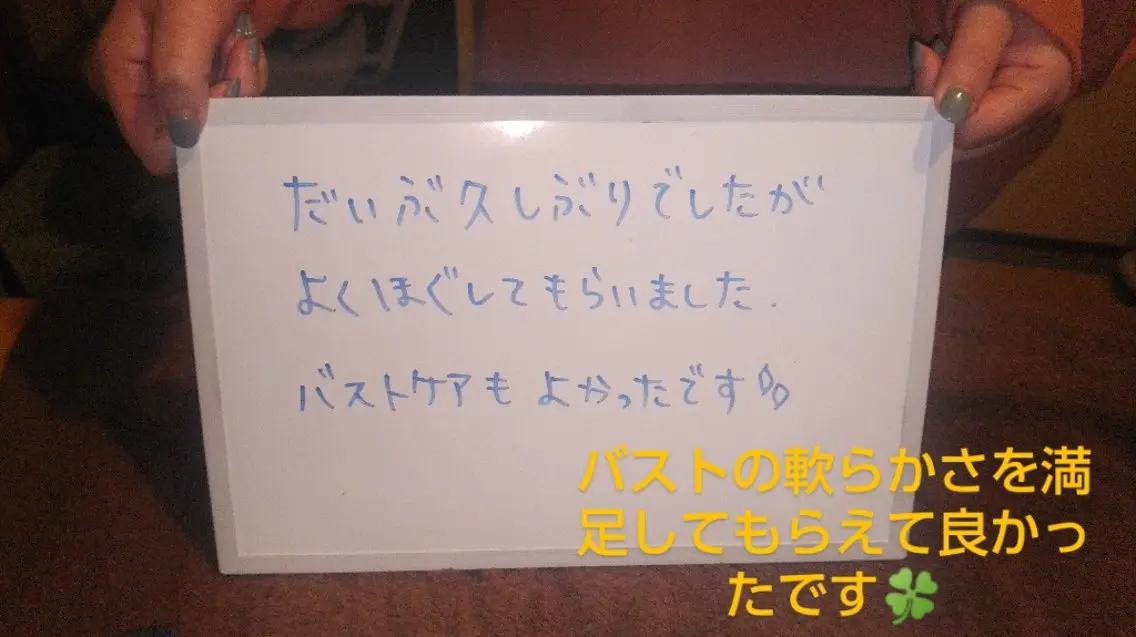 だいぶ久しぶりでしたが
よくほぐしてもらいました.
バストケアもよかったです
バストの軟らかさを満
足してもらえて良かっ
たです🍀